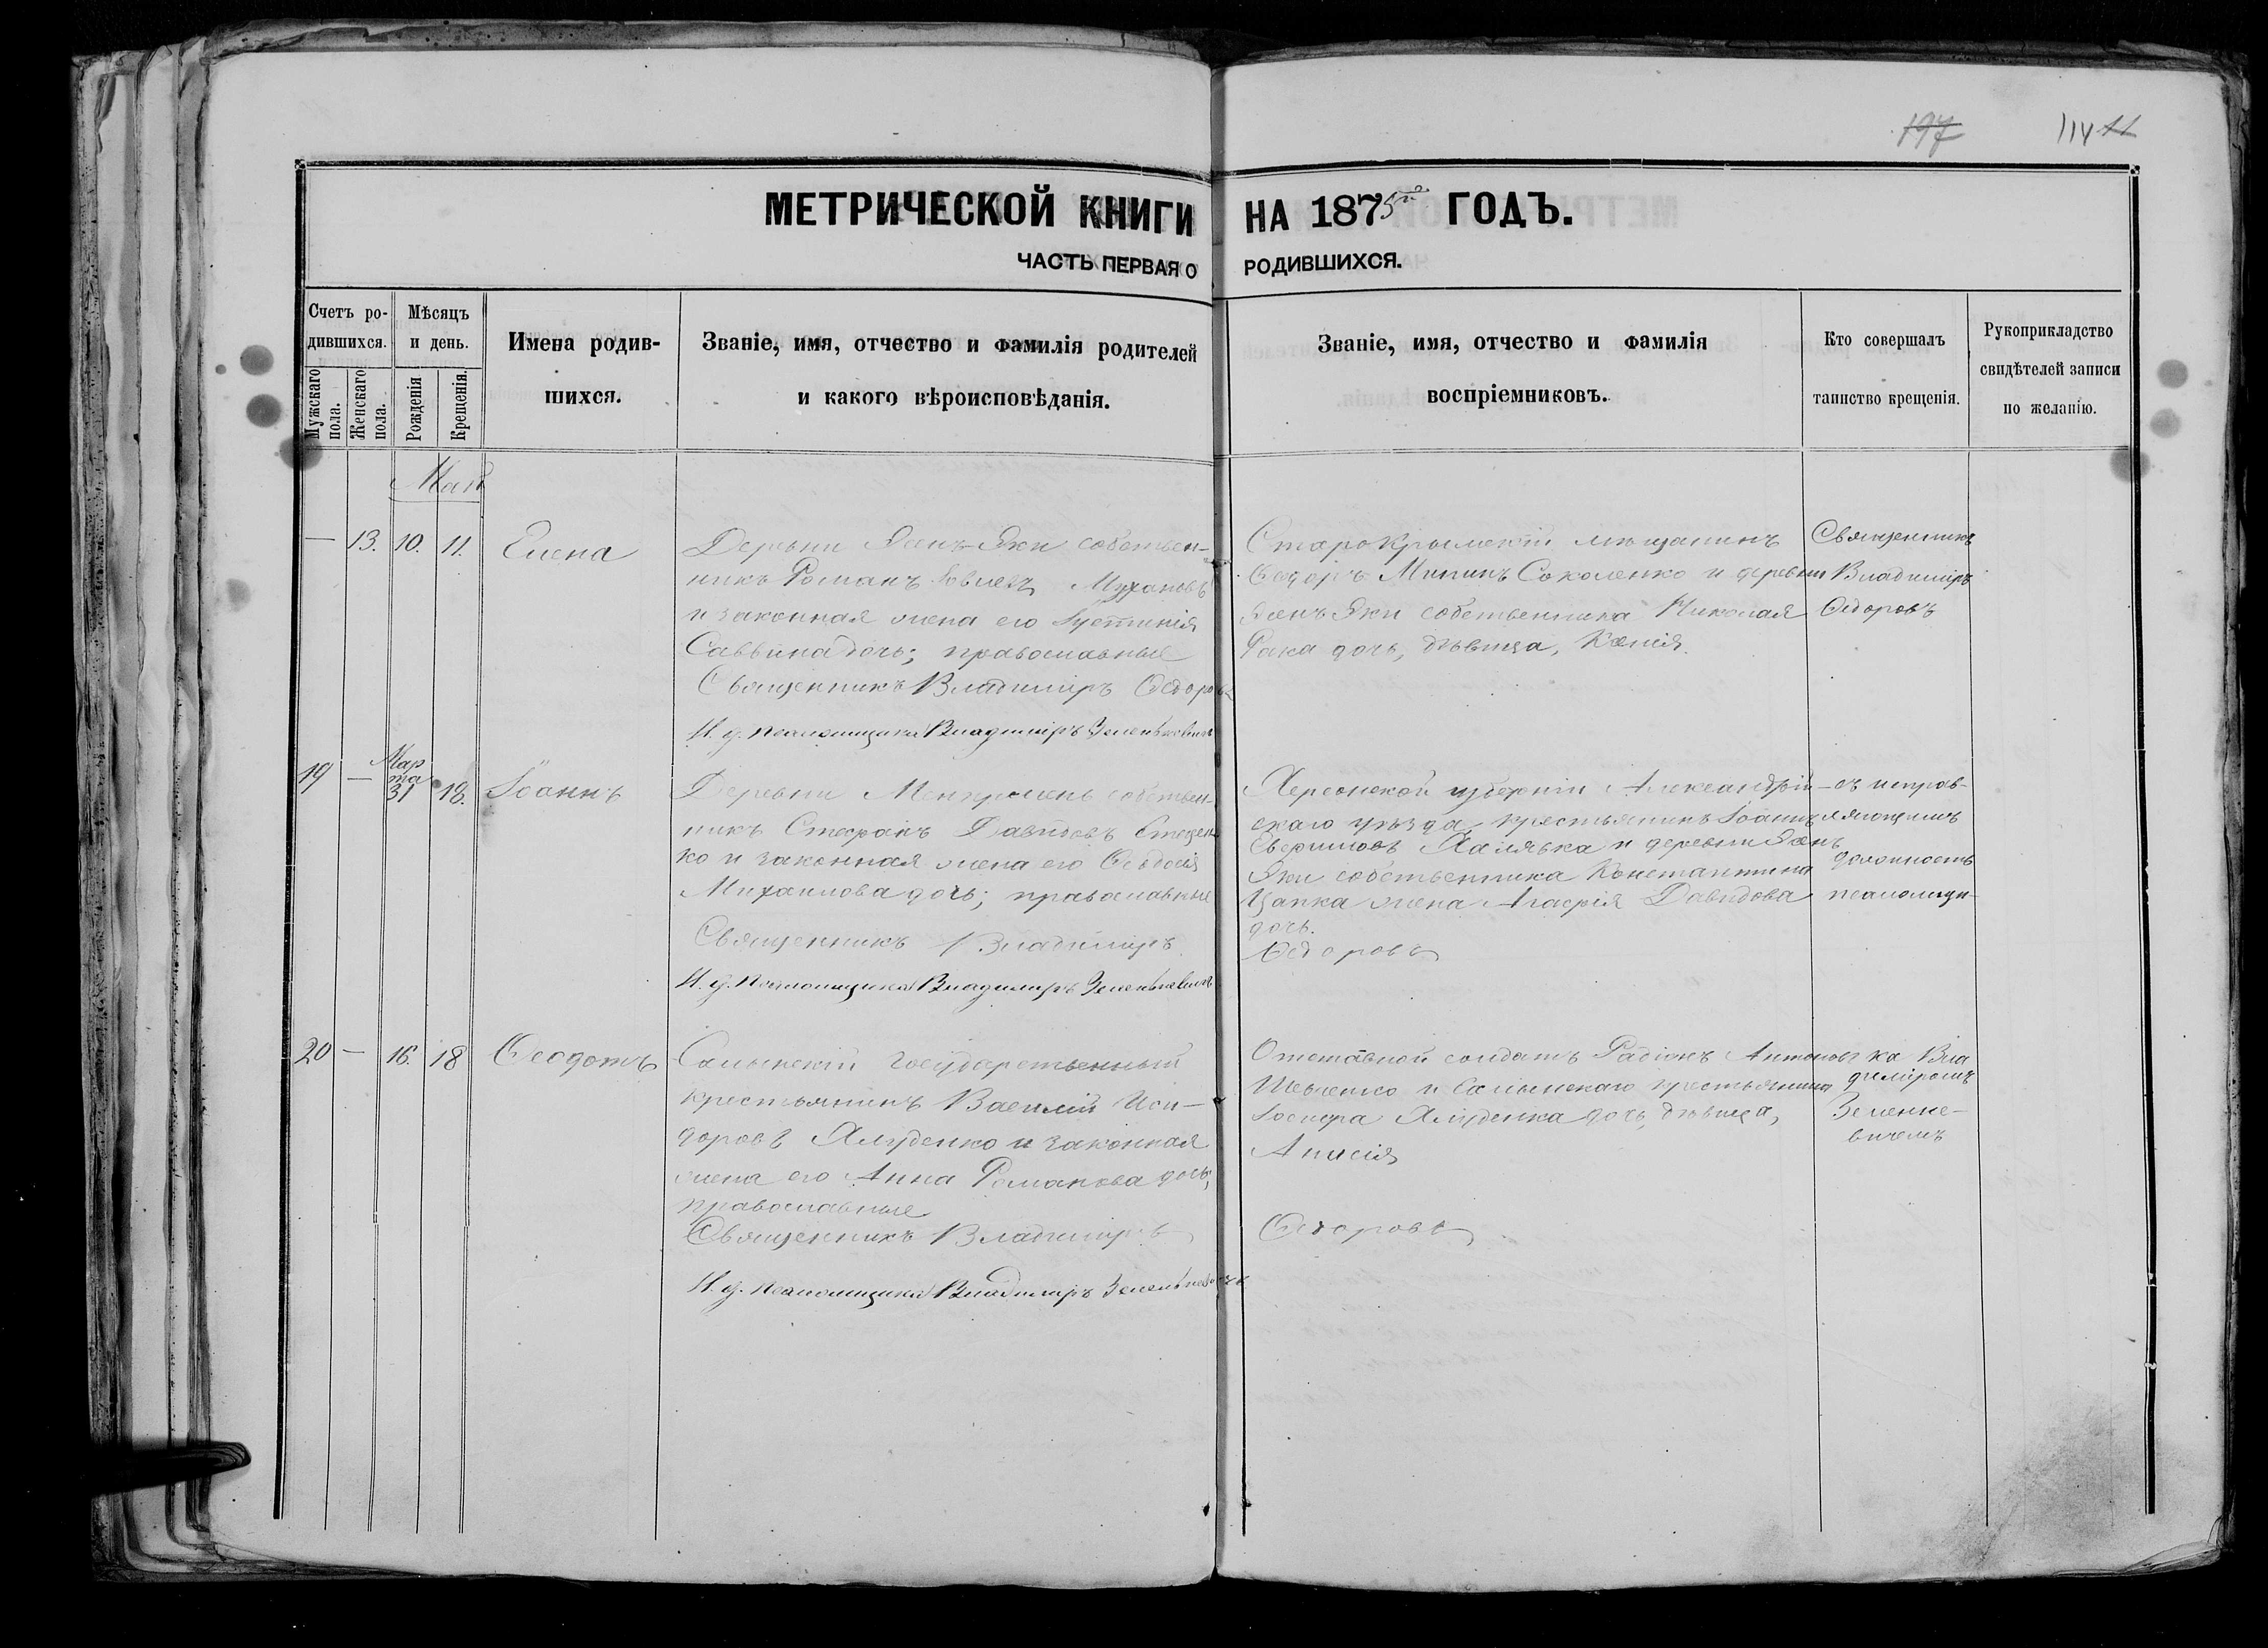 197 114 11
МЕТРИЧЕСКОЙ КНИГИ НА 1875й ГОДЪ.
ЧАСТЬ ПЕРВАЯ О РОДИВШИХСЯ.
Счетъ ро-
дившихся.
Мужскаго пола.
Женскаго пола.
Мѣсяцъ
и день.
Рожденія
Крещенія.
Имена родив-
шихся.
Званіе, имя, отчество и фамилія родителей
и какого вѣроисповѣданія.
Званіе, имя, отчество и фамилія
воспріемниковъ.
Кто совершалъ
таинство крещенія.
Рукоприкладство
свидѣтелей записи
по желанію.
Май
— 13. 10. 11. Елена
Деревни собствен-
никъ Романъ Іовлевъ
и законная жена его Іустинія
Саввина дочь; православные
Священникъ Владиміръ Ѳедоровъ
И. д. псаломщика Владиміръ Зеленкевичъ
Старокрымскій мѣщанинъ
Ѳедоръ Мининъ Соколенко и деревни
собственника Николая
Рака дочь, дѣвица, Ксенія.
Священникъ
Владиміръ
Ѳедоровъ
19 — Мар
та
31 18. Іоаннъ
Деревни собствен-
никъ Стефанъ Давидовъ Стецен-
ко и законная жена его Ѳеодосія
Михаилова дочь; православные
Священникъ Владиміръ
И. д. псаломщика Владиміръ Зеленкевичъ
Херсонской губерніи Александрій-
скаго уѣзда, крестьянинъ Іоаннъ
Халявка и деревни
собственника Константина
Цапка жена Агафія Давидова
дочь.
Ѳедоровъ
— съ исправ-
ляющимъ
должность
псаломщи-
20 — 16. 18 Ѳеодотъ
Салынскій государственный
крестьянинъ Василій Иси-
доровъ Ялуденко и законная
жена его Анна Романова дочь;
православные
Священникъ Владиміръ
И. д. псаломщика Владиміръ Зеленкевичъ
Отставной солдатъ Радіонъ Антоновъ
Шевченко и Салынскаго крестьянина
Іосифа Ялуденка дочь, дѣвица,
Анисія
Ѳедоровъ
ка Вла
диміромъ
Зеленке-
вичемъ